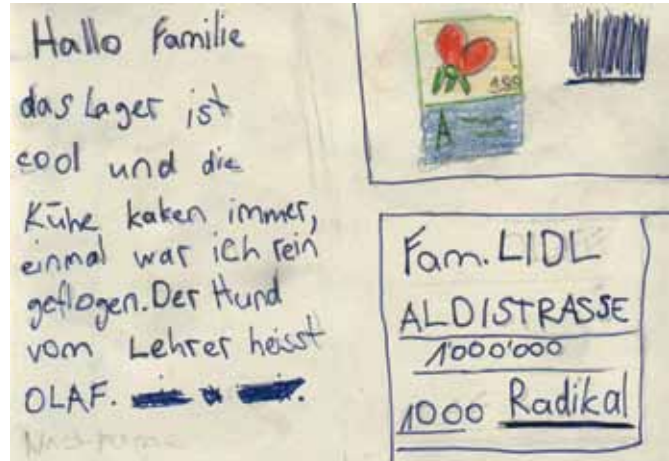 Hallo Familie
das Lager ist
cool und die
Kühe kaken immer,
einmal war ich rein
geflogen. Der Hund
vom Lehrer heisst
OLAF.
A
Fam. LIDL
ALDISTRASSE
1'000'000
1000 Radikal